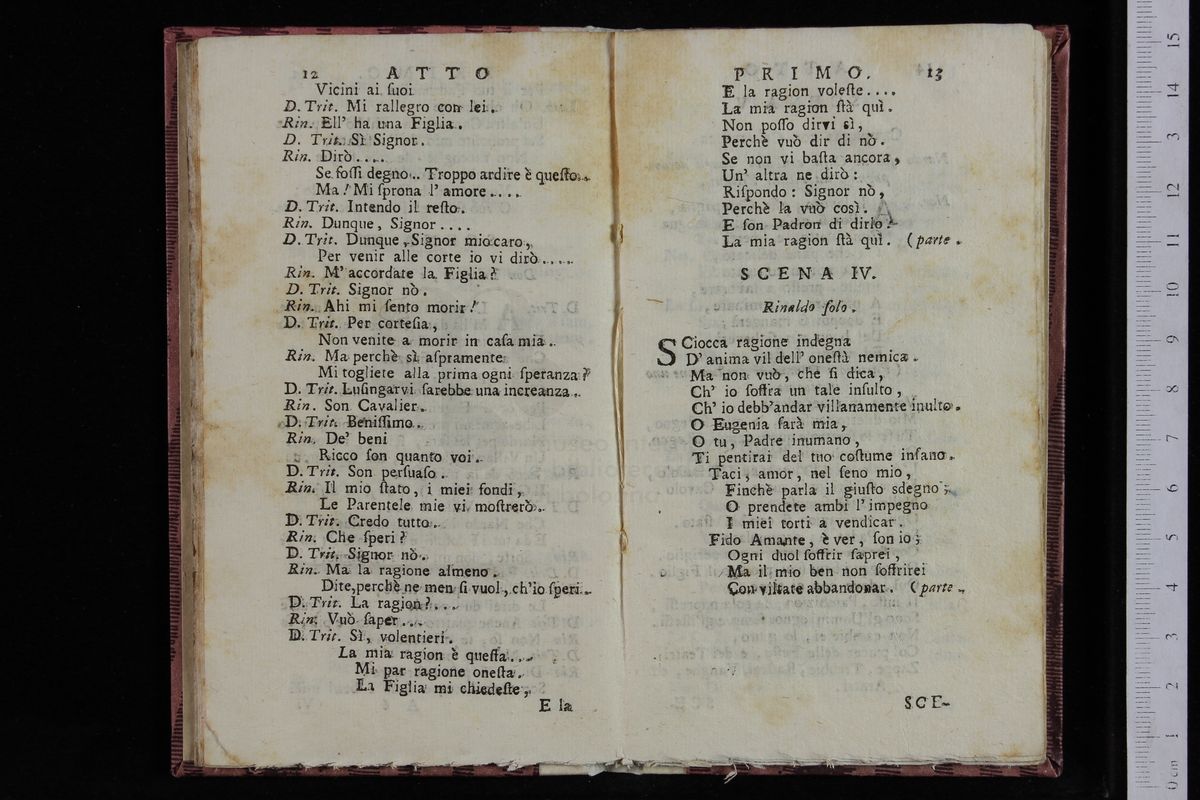 12 ATTO
Vicini ai ſuoi
D. Trit. Mi rallegro con lei.
Rin. Ell' ha una Figlia.
D. Trit. Sì Signor.
Rin. Dirò....
Se foſſi degno.. Troppo ardire è queſto..
Ma! Mi ſprona l' amore....
D. Trit. Intendo il reſto.
Rin. Dunque, Signor....
D. Trit. Dunque, Signor mio caro,
Per venir alle corte io vi dirò....
Rin. M' accordate la Figlia?
D. Trit. Signor nò.
Rin. Ahi mi ſento morir!
D. Trit. Per corteſia,
Non venite a morir in caſa mia.
Rin. Ma perchè sì aſpramente
Mi togliete alla prima ogni ſperanza?
D. Trit. Luſingarvi ſarebbe una increanza.
Rin. Son Cavalier.
D. Trit. Beniſſimo.
Rin. De' beni
Ricco ſon quanto voi.
D. Trit. Son perſuaſo.
Rin. Il mio ſtato, i miei fondi,
Le Parentele mie vi moſtrerò.
D. Trit. Credo tutto.
Rin. Che ſperi?
D. Trit. Signor nò.
Rin. Ma la ragione almeno.
Dite, perchè ne men ſi vuol, ch'io ſperi.
D. Trit. La ragion?...
Rin. Vuò ſaper...
D. Trit. Sì, volentieri.
La mia ragion è queſta...
Mi par ragione oneſta.
La Figlia mi chiedeſte,
E la
PRIMO. 13
E la ragion voleſte....
La mia ragion ſtà quì.
Non poſſo dirvi sì,
Perchè vuò dir di nò.
Se non vi baſta ancora,
Un' altra ne dirò:
Riſpondo: Signor nò,
Perchè la vuò così.
E ſon Padron di dirlo!
La mia ragion ſtà quì. (parte.
SCENA IV.
Rinaldo ſolo.
SCiocca ragione indegna
D' anima vil dell' oneſtà nemica.
Ma non vuò, che ſi dica,
Ch' io ſoffra un tale inſulto,
Ch' io debb'andar villanamente inulto.
O Eugenia ſarà mia,
O tu, Padre inumano,
Ti pentirai del tuo coſtume inſano.
Taci, amor, nel ſeno mio,
Finchè parla il giuſto sdegno;
O prendete ambi l' impegno
I miei torti a vendicar.
Fido Amante, è ver, ſon io;
Ogni duol ſoffrir ſaprei,
Ma il mio ben non ſoffrirei
Con viltate abbandonar. (parte.
SCE-